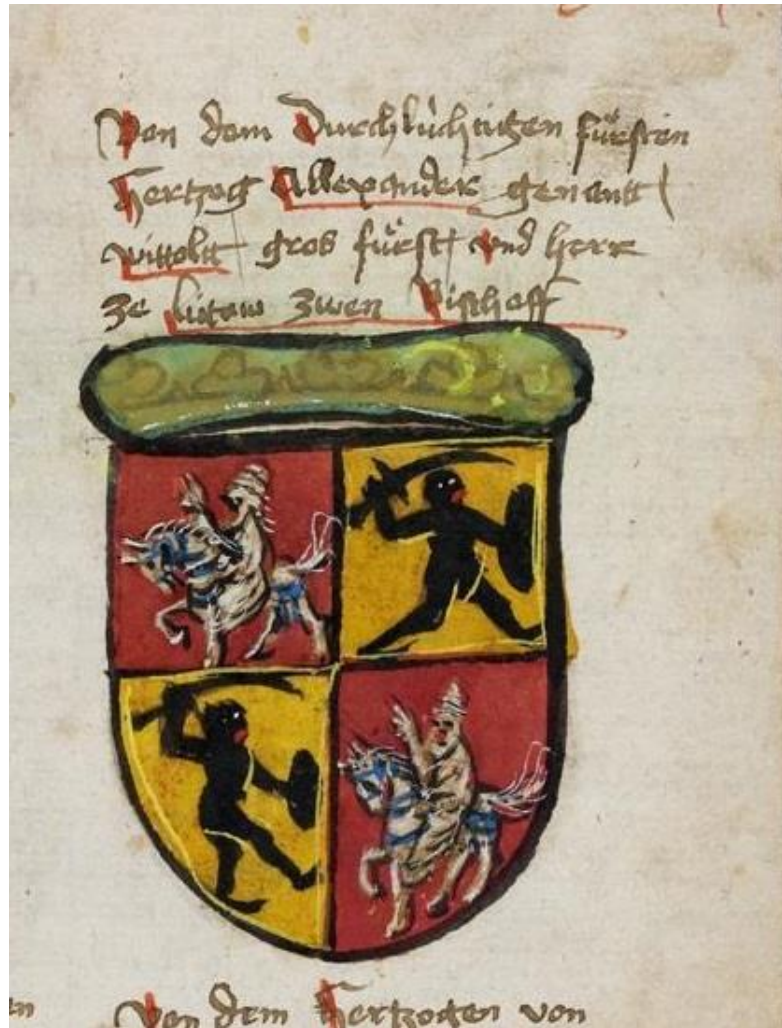 Von dem Durchlüchtigen fürsten
hertzog Allexander genantt
wittoltt gros fürst vnd herr
ze lutow zwen Bischoff
en Von dem Hertzogen von